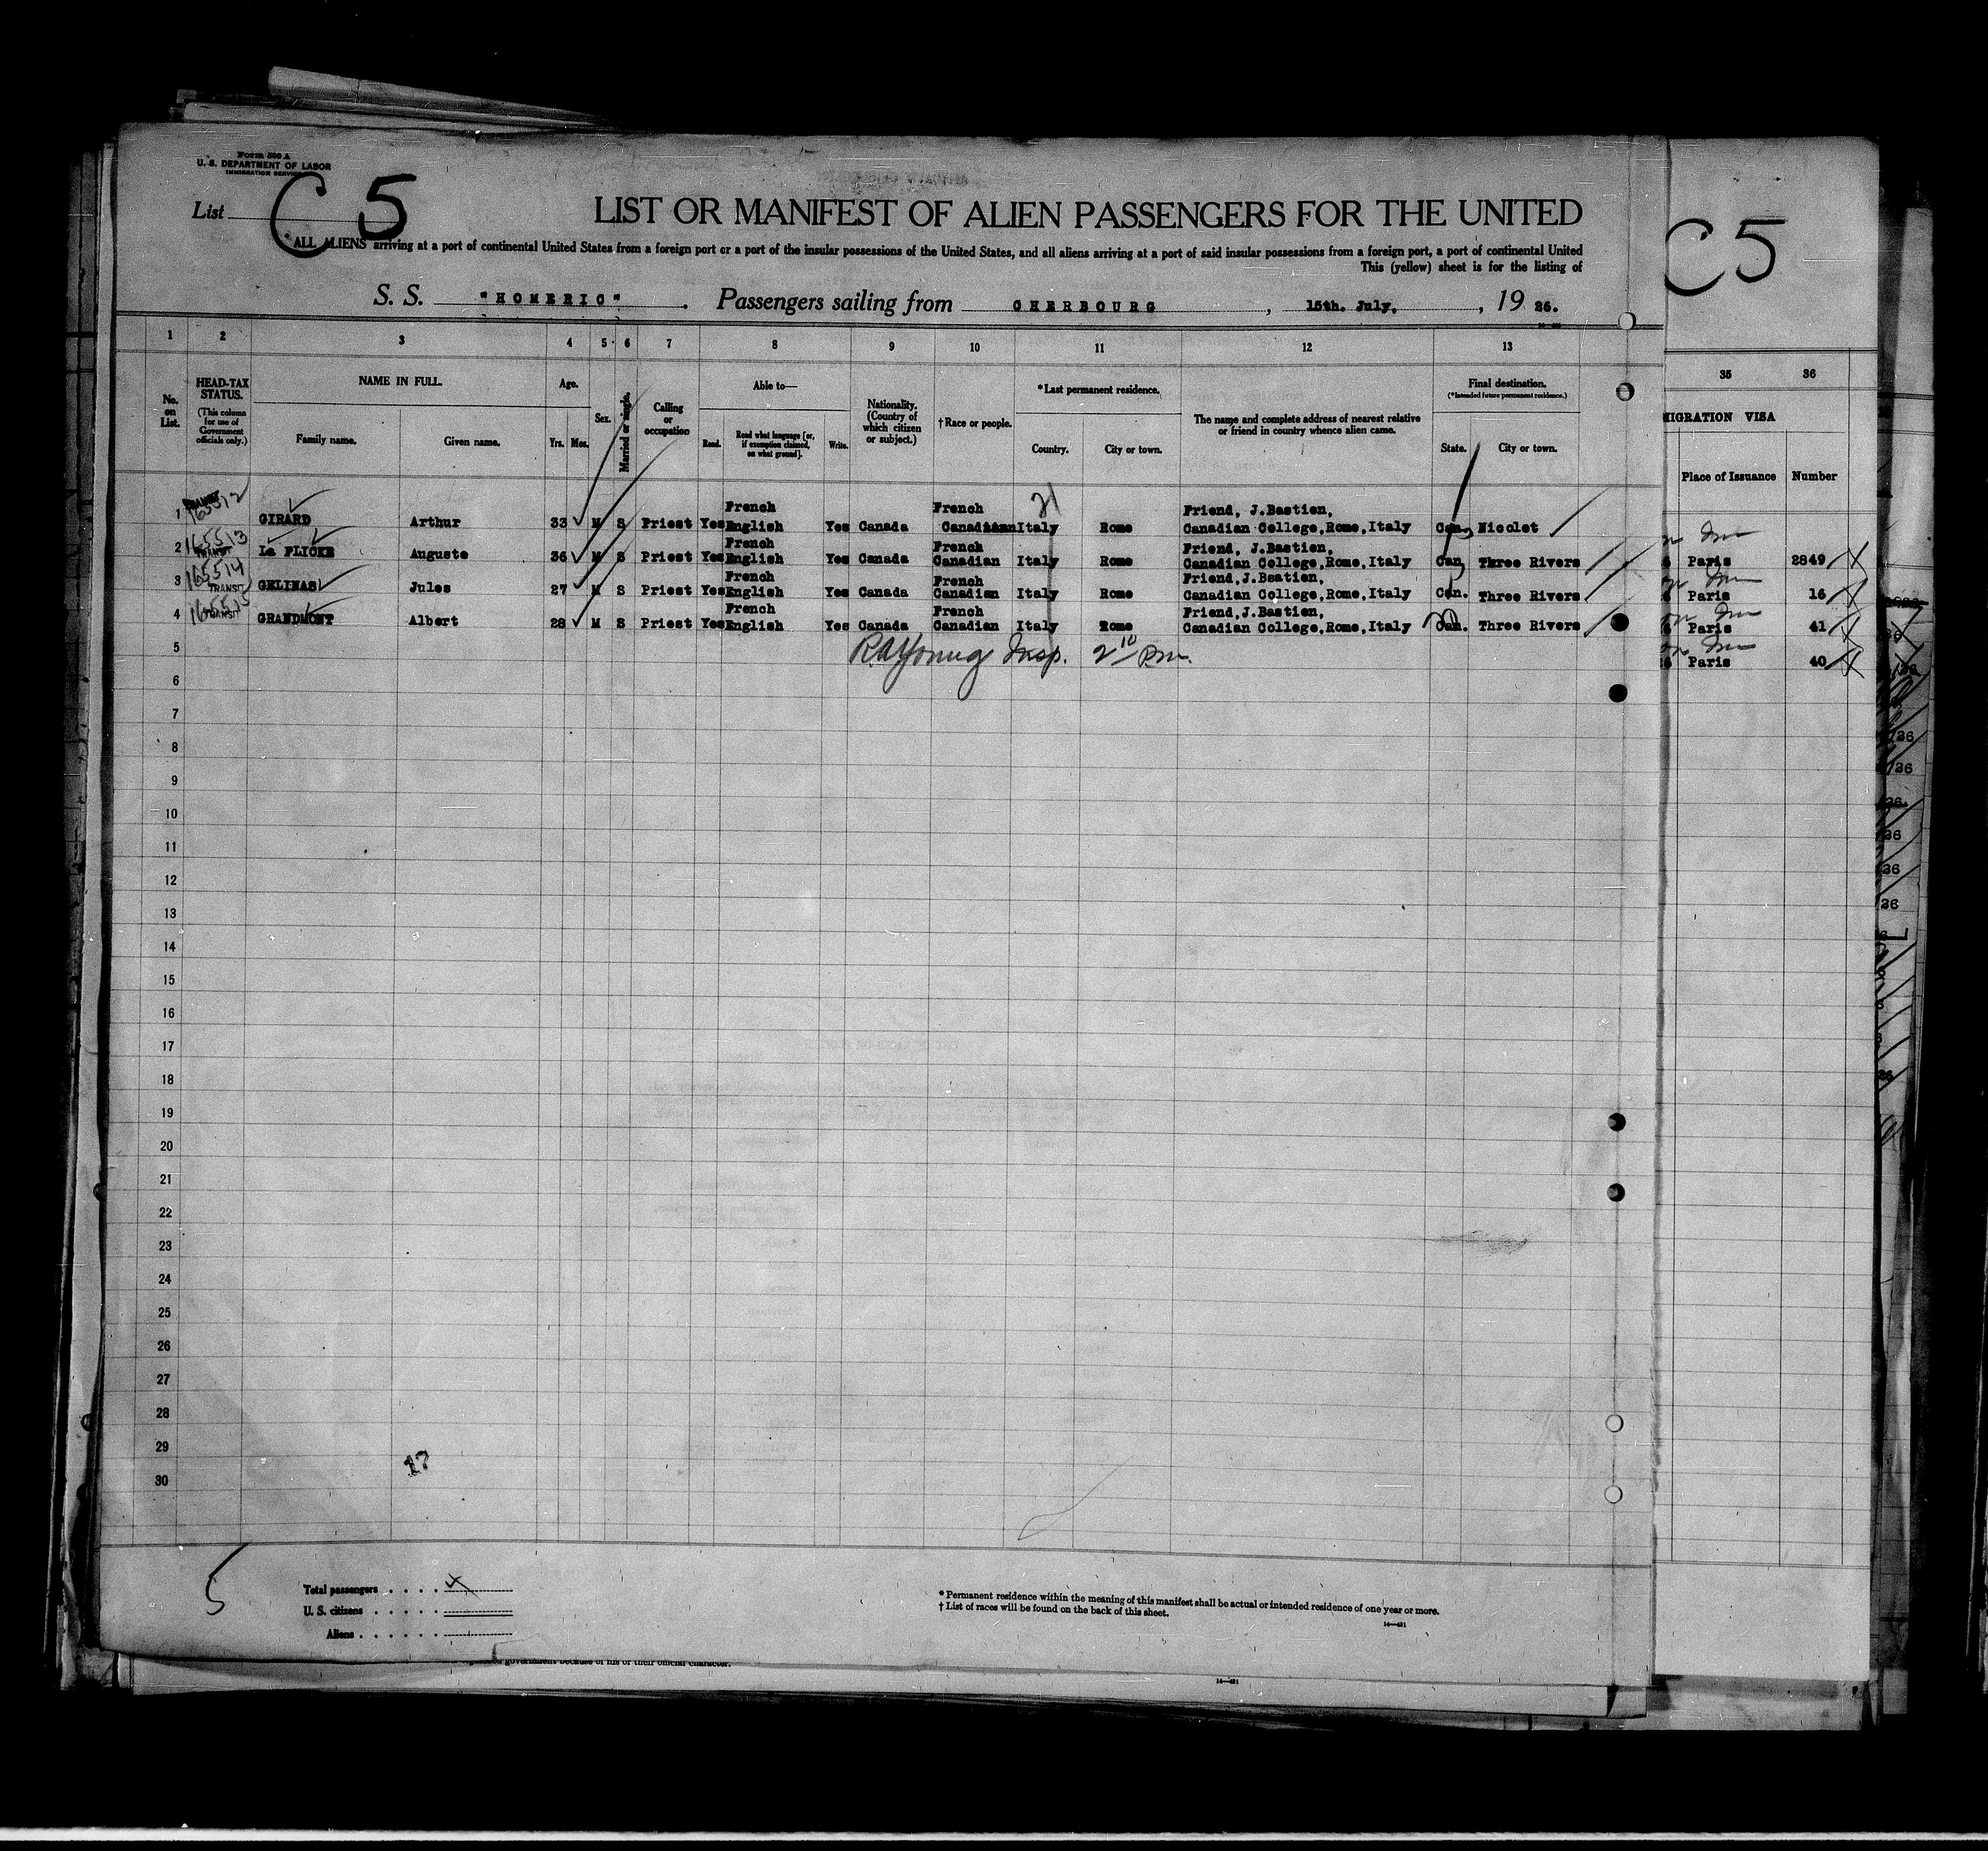 Form 500 A
U. S. DEPARTMENT OF LABOR
IMMIGRATION SERVICE
List C 5
LIST OR MANIFEST OF ALIEN PASSENGERS FOR THE UNITED
ALL ALIENS arriving at a port of continental United States from a foreign port or a port of the insular possessions of the United States, and all aliens arriving at a port of said insular possessions from a foreign port, a port of continental United
This (yellow) sheet is for the listing of
C5
S. S. "HOMERIC". Passengers sailing from CHERBOURG, 15th. July, 19 26.
1 2 3 4 5 6 7 8 9 10 11 12 13 35 36
No. on List.
HEAD-TAX STATUS.
(This column for use of Government officials only.)
NAME IN FULL.
Family name. Given name.
Age.
Yrs. Mos.
Sex.
Married or single.
Calling or occupation
Able to—
Read. Read what language [or, if exemption claimed, on what ground]. Write.
Nationality. (Country of which citizen or subject.)
† Race or people.
* Last permanent residence.
Country. City or town.
The name and complete address of nearest relative or friend in country whence alien came.
Final destination.
(*Intended future permanent residence.)
State. City or town.
MIGRATION VISA
Place of Issuance Number
21
1 165512 GIRARD Arthur 33 M S Priest Yes French English Yes Canada French Canadian Italy Rome Friend, J.Bastien, Canadian College,Rome,Italy Can. Nicolet
2 165513 TRANSIT La FLICHE Auguste 36 M S Priest Yes French English Yes Canada French Canadian Italy Rome Friend, J.Bastien, Canadian College,Rome,Italy Can. Three Rivers Paris 2849
3 165514 TRANSIT GELINAS Jules 27 M S Priest Yes French English Yes Canada French Canadian Italy Rome Friend,J.Bsatien, Canadian College,Rome,Italy Can. Three Rivers Paris 16
4 165515 TRANSIT GRANDMONT Albert 28 M S Priest Yes French English Yes Canada French Canadian Italy Rome Friend,J.Bastien, Canadian College,Rome,Italy Can. Three Rivers Paris 41
5 RA Young Insp. 2 10 Pm. Paris 40
6
7
8
9
10
11
12
13
14
15
16
17
18
19
20
21
22
23
24
25
26
27
28
29
30
17
5
Total passengers . . . .
U. S. citizens . . . . .
Aliens . . . . . . .
* Permanent residence within the meaning of this manifest shall be actual or intended residence of one year or more.
† List of races will be found on the back of this sheet.
14—421
government because of his or their official character.
14—421